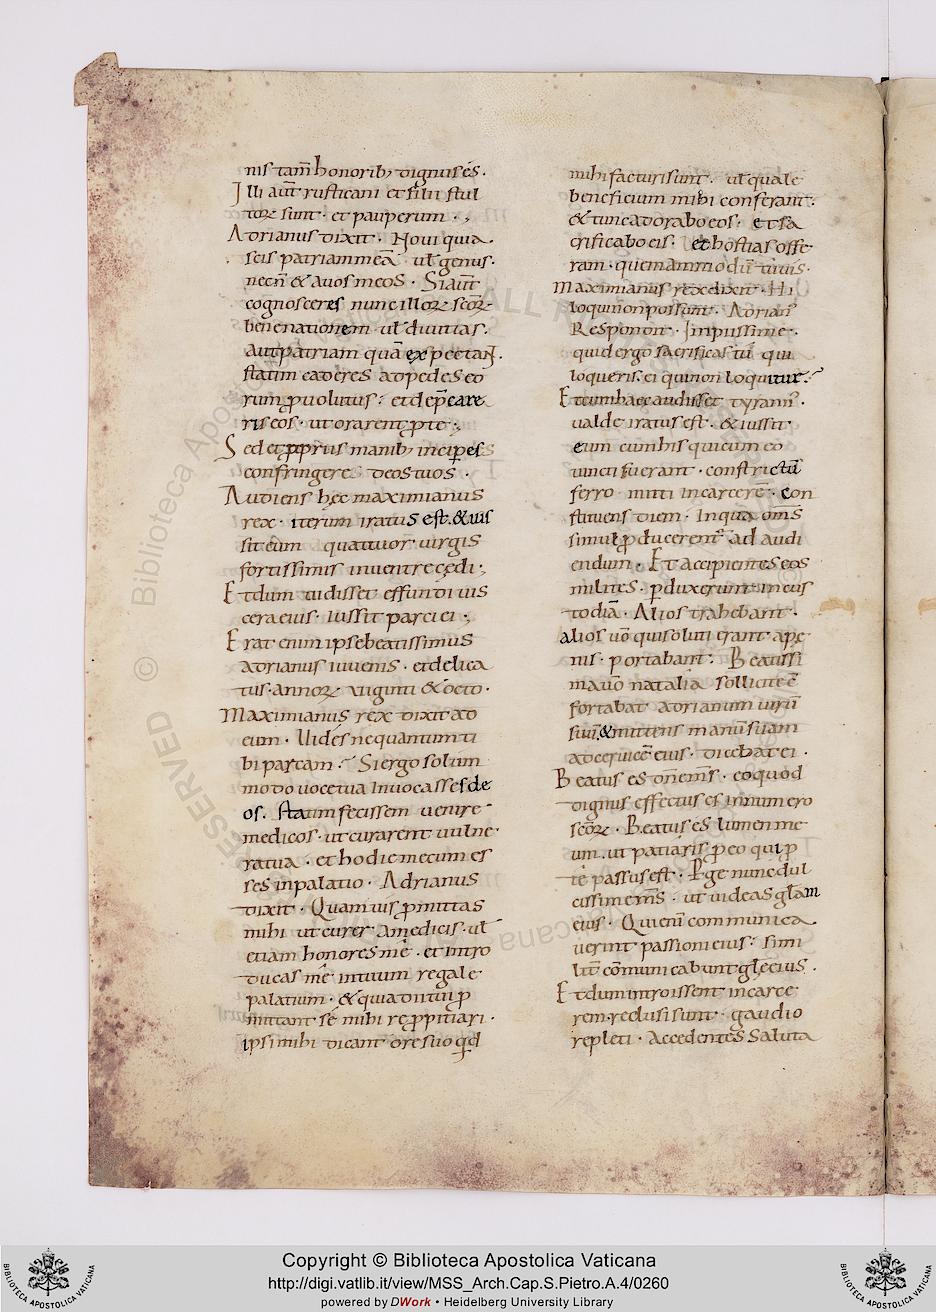 nis tam̄ honorib; dignus es.
Illi aut̄ rusticani et filii stul
toꝝ sunt. et pauperum.,
Adrianus dixit. Noui quia
scis patriam meā ul̄ genus.
necn̄ & auos meos. Si aut̄
cognosceres nunc illoꝝ sc̄oꝝ
bene nationem ul̄ diuitias.
Aut patriam quā expectant.
statim caderes ad pedes eo
rum ꝓuolutus: et dep̄care
ris eos. ut orarent ꝓ te.,
Sed et ꝓpriis manib; incip̄es
confringere deos tuos.
Audiens hęc maximianus
rex. iterum iratus est. & ius
sit eum quattuor uirgis
fortissimis in uentre cędi.,
Et dum uidisset effundi uis
cera eius. iussit parci ei.,
Erat enim ipse beatissimus
adrianus iuuenis. et delica
tus. annoꝝ uiginti & octo.
Maximianus rex dixit ad
eum. Uides nequantum ti
bi parcam. Si ergo solum
modo uoce tua inuocasses de
os. statim fecissem uenire
medicos. ut curarent uulne
ra tua. et hodie mecum es
ses in palatio. Adrianus
dixit. Quamuis ꝓmittas
mihi ut curer a medicis. ul̄
etiam honores me. et intro
ducas me in tuum regale
palatium. & quia dii tui ꝓ
mittant se mihi repropitiari.
ipsi mihi dicant ore suo qd̄
mihi facturi sunt. ul̄ quale
beneficium mihi conferant.
& tunc adorabo eos. et sa
crificabo eis. et hostias offe
ram. quemammodū tu uis.
Maximianus rex dixit. Hi
loqui non possunt. Adrian;
Respondit. Impiissime.
quid ergo sacrificas tu qui
loqueris. ei qui non loquitur?
Et cum haec audisset tyrann;
ualde iratus est. & iussit
eum cum his qui cum eo
uincti fuerant. constrictū
ferro mitti in carcerē. con
stituens diem. In qua om̄s
simul ꝓducerent̄ ad audi
endum. Et accipientes eos
milites. ꝑduxerunt in cus
todiā. Alios trahebant.
alios uō qui soluti erant a pę
nis. portabant. Beatissi
ma uō natalia sollicite cō
fortabat adrianum uirū
suū, & mittens manū suam
ad ceruicē eius. dicebat ei.
Beatus es dn̄e m̄s. eo quod
dignus effectus es in numero
sc̄oꝝ. Beatus es lumen me
um. ut patiaris ꝓ eo qui ꝓ
te passus est. Perge nunc dul
cissime m̄s. ut uideas glām
eius. Qui enī communica
uerint passioni eius: simi
lit̄ cōmunicabunt glę eius.
Et dum introissent in carce
rem. reclusi sunt. gaudio
repleti. Accedentes saluta
Copyright © Biblioteca Apostolica Vaticana
http://digi.vatlib.it/view/MSS_Arch.Cap.S.Pietro.A.4/0260
powered by DWork • Heidelberg University Library
BIBLIOTECA APOSTOLICA VATICANA
BIBLIOTECA APOSTOLICA VATICANA